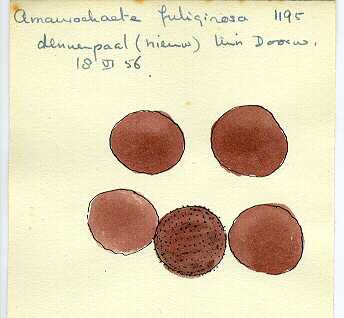 Amaurochaete fuliginosa 1195
dennenpaal (nieuw) tuin Doorw.
18 VI 56.